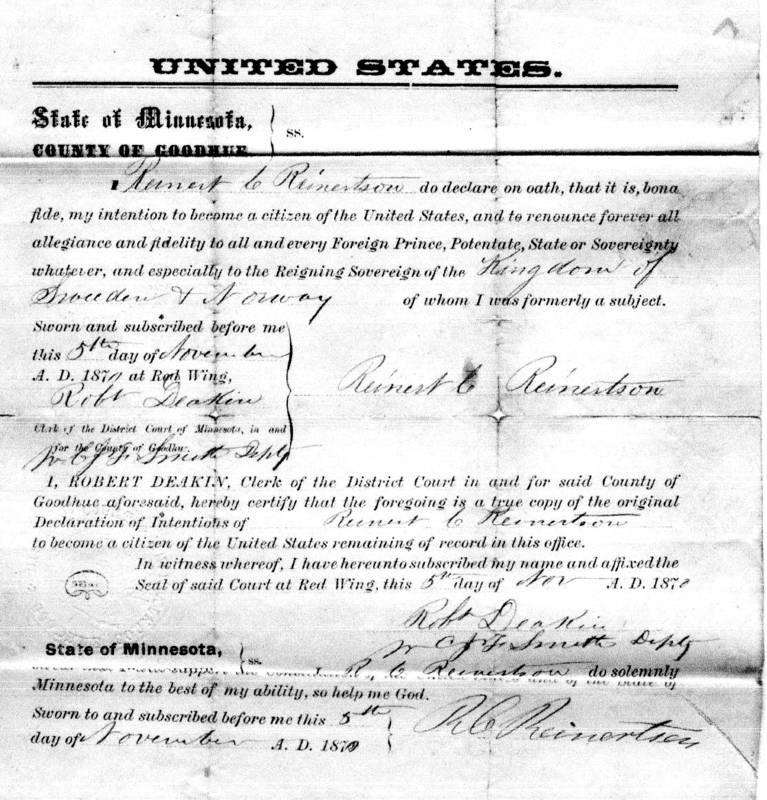 UNITED STATES.
State of Minnesota,
COUNTY OF GOODHUE
ss.
I Reinert C Reinertson do declare on oath, that it is, bona
fide, my intention to become a citizen of the United States, and to renounce forever all
allegiance and fidelity to all and every Foreign Prince, Potentate, State or Sovereignty
whatever, and especially to the Reigning Sovereign of the Kingdom of
Sweeden & Norway of whom I was formerly a subject.
Sworn and subscribed before me
this 5th day of November
A. D. 1870 at Red Wing,
Reinert C Reinertson
Robt Deakin
Clerk of the District Court of Minnesota, in and
for the County of Goodhue.
C J F Smith Depty
I, ROBERT DEAKIN, Clerk of the District Court in and for said County of
Goodhue aforesaid, hereby certify that the foregoing is a true copy of the original
Declaration of Intentions of Reinert C Reinertson
to become a citizen of the United States remaining of record in this office.
In witness whereof, I have hereunto subscribed my name and affixed the
Seal of said Court at Red Wing, this 5th day of Nov A. D. 1870
Robt Deakin
C J F Smith Depty
State of Minnesota,
ss.
I R C Reinertson do solemnly
support the Constitution of the United States and of the State of
Minnesota to the best of my ability, so help me God.
Sworn to and subscribed before me this 5th
day of November A. D. 1870
R C Reinertson